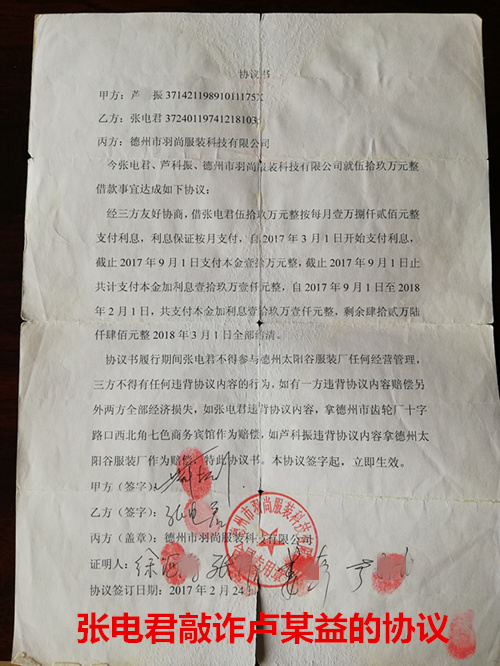 协议书
甲方：芦 振 37142119891011175X
乙方：张电君 37240119741218103
丙方：德州市羽尚服装科技有限公司
今张电君、芦科振、德州市羽尚服装科技有限公司就伍拾玖万元整
借款事宜达成如下协议：
经三方友好协商，借张电君伍拾玖万元整按每月壹万捌仟贰佰元整
支付利息，利息保证按月支付，自 2017 年 3 月 1 日开始支付利息，
截止 2017 年 9 月 1 日支付本金壹拾万元整，截止 2017 年 9 月 1 日止
共计支付本金加利息壹拾玖万壹仟元整，自 2017 年 9 月 1 日至 2018
年 2 月 1 日，共支付本金加利息壹拾玖万壹仟元整，剩余肆拾贰万陆
仟肆佰元整 2018 年 3 月 1 日全部结清。
协议书履行期间张电君不得参与德州太阳谷服装厂任何经营管理，
三方不得有任何违背协议内容的行为，如有一方违背协议内容赔偿另
外两方全部经济损失，如张电君违背协议内容，拿德州市齿轮厂十字
路口西北角七色商务宾馆作为赔偿，如芦科振违背协议内容拿德州太
阳谷服装厂作为赔偿。特此协议书。本协议签字起，立即生效。
甲方（签字）：
乙方（签字）：张电君
丙方（盖章）：德州市羽尚服装科技有限公司
证明人：徐 张
协议签订日期：2017 年 2 月 24 日
张电君敲诈卢某益的协议